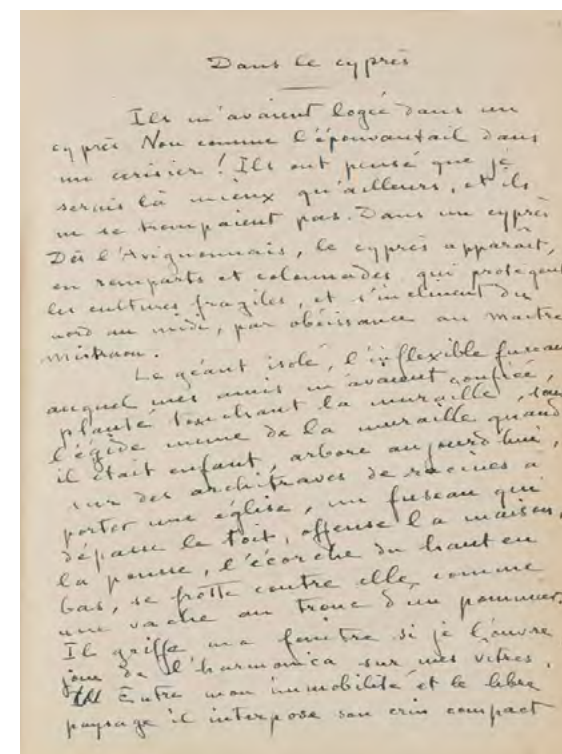 Dans le cyprès
Ils m'avaient logée dans un
cyprès Non comme l'épouvantail dans
un cerisier ! Ils ont pensé que je
serais là mieux qu'ailleurs, et ils
ne se trompaient pas. Dans un cyprès
Dès l'Avignonnais, le cyprès apparaît,
en remparts et colonnades qui protègent
les cultures fragiles, et s'inclinent du
nord au midi, par obéissance au maître
mistraou.
Le géant isolé, l'inflexible fuseau
auquel mes amis m'avaient confiée,
planté touchant la muraille, sous
l'égide même de la muraille quand
il était enfant, arbore aujourd'hui,
sur des architraves de racines à
porter une église, un fuseau qui
dépasse le toit, offense la maison,
la pousse, l'écorche du haut en
bas, se frotte contre elle, comme
une vache au tronc d'un pommier.
Il griffe ma fenêtre si je l'ouvre
joue de l'harmonica sur mes vitres.
Entre mon immobilité et le libre
paysage il interpose son crin compact